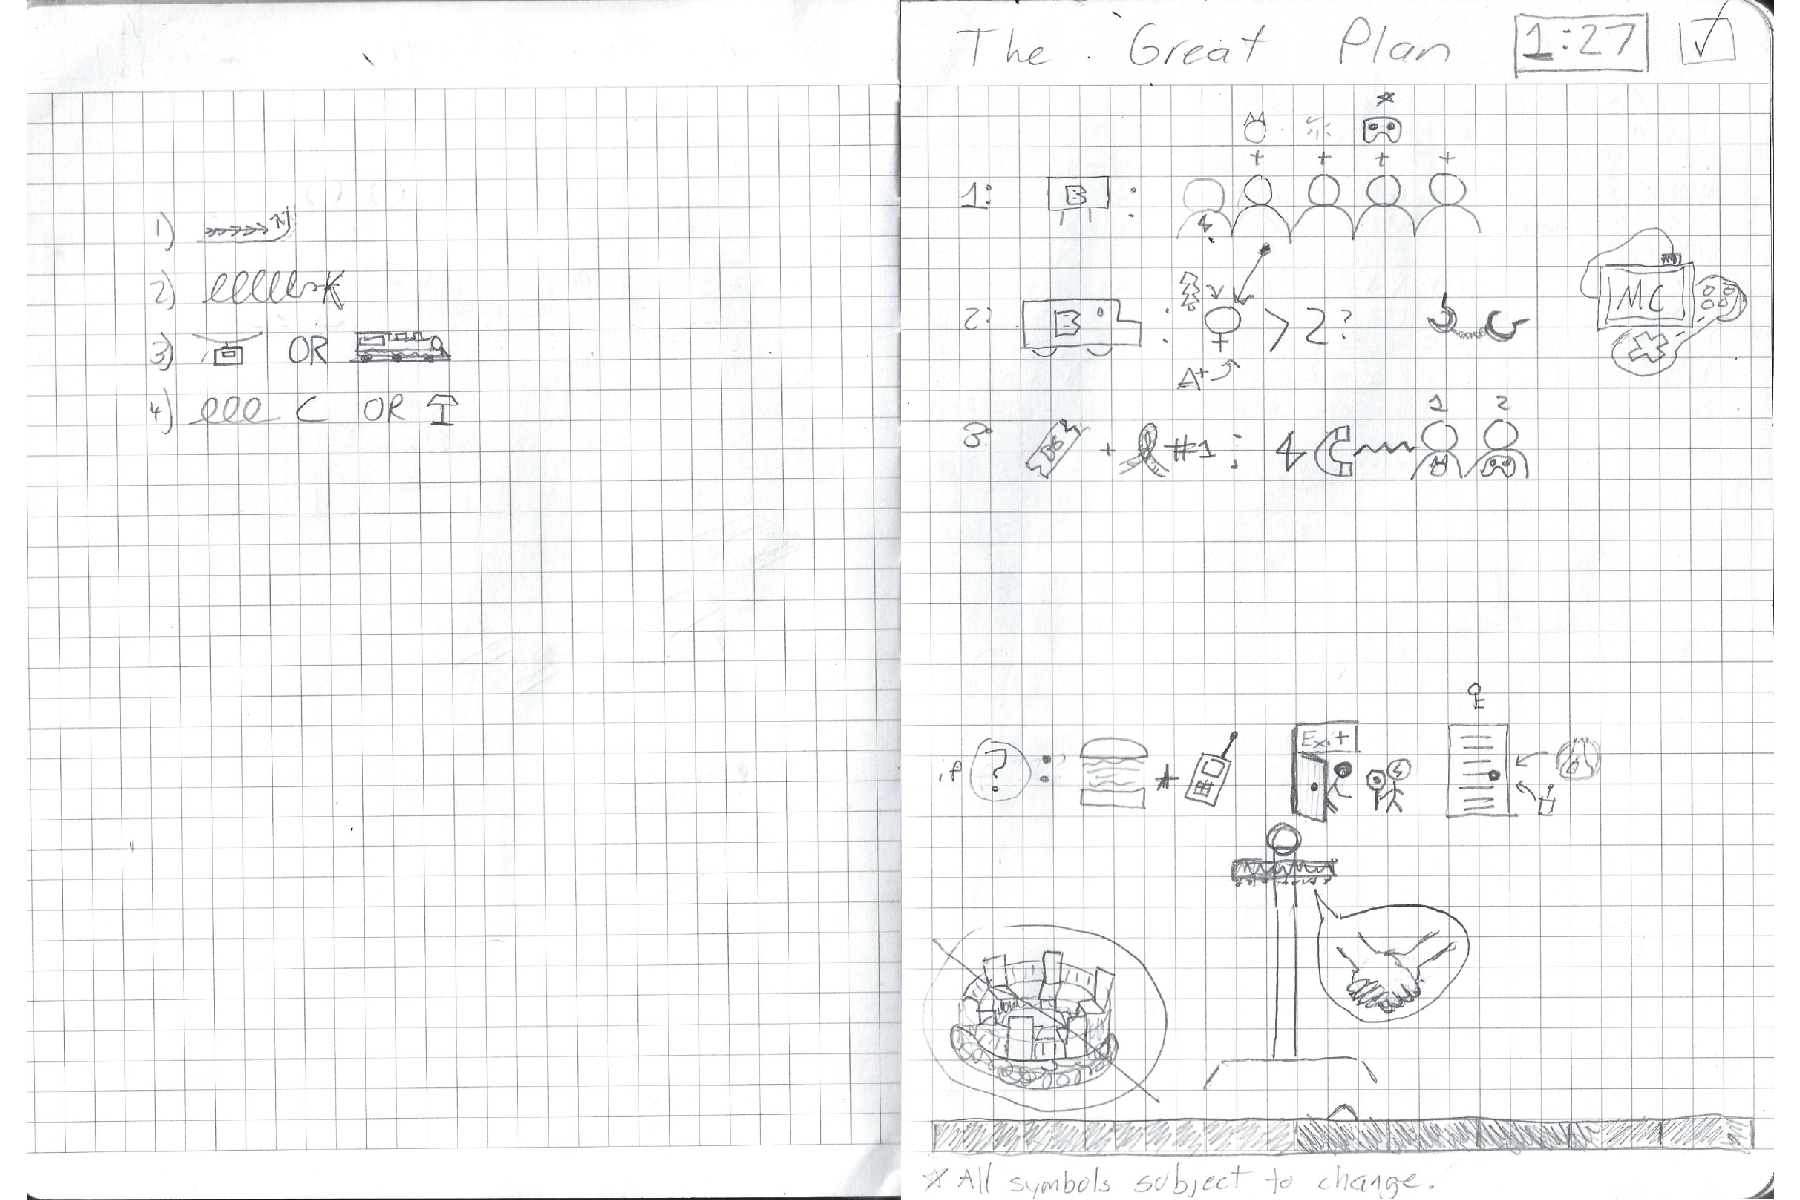 1)
2)
3) OR
4) C OR
The Great Plan 1:27
1: B :
2: B : > 2? MC
A+
1 2
3: + #1:
if ? : + Exit
* All symbols subject to change.